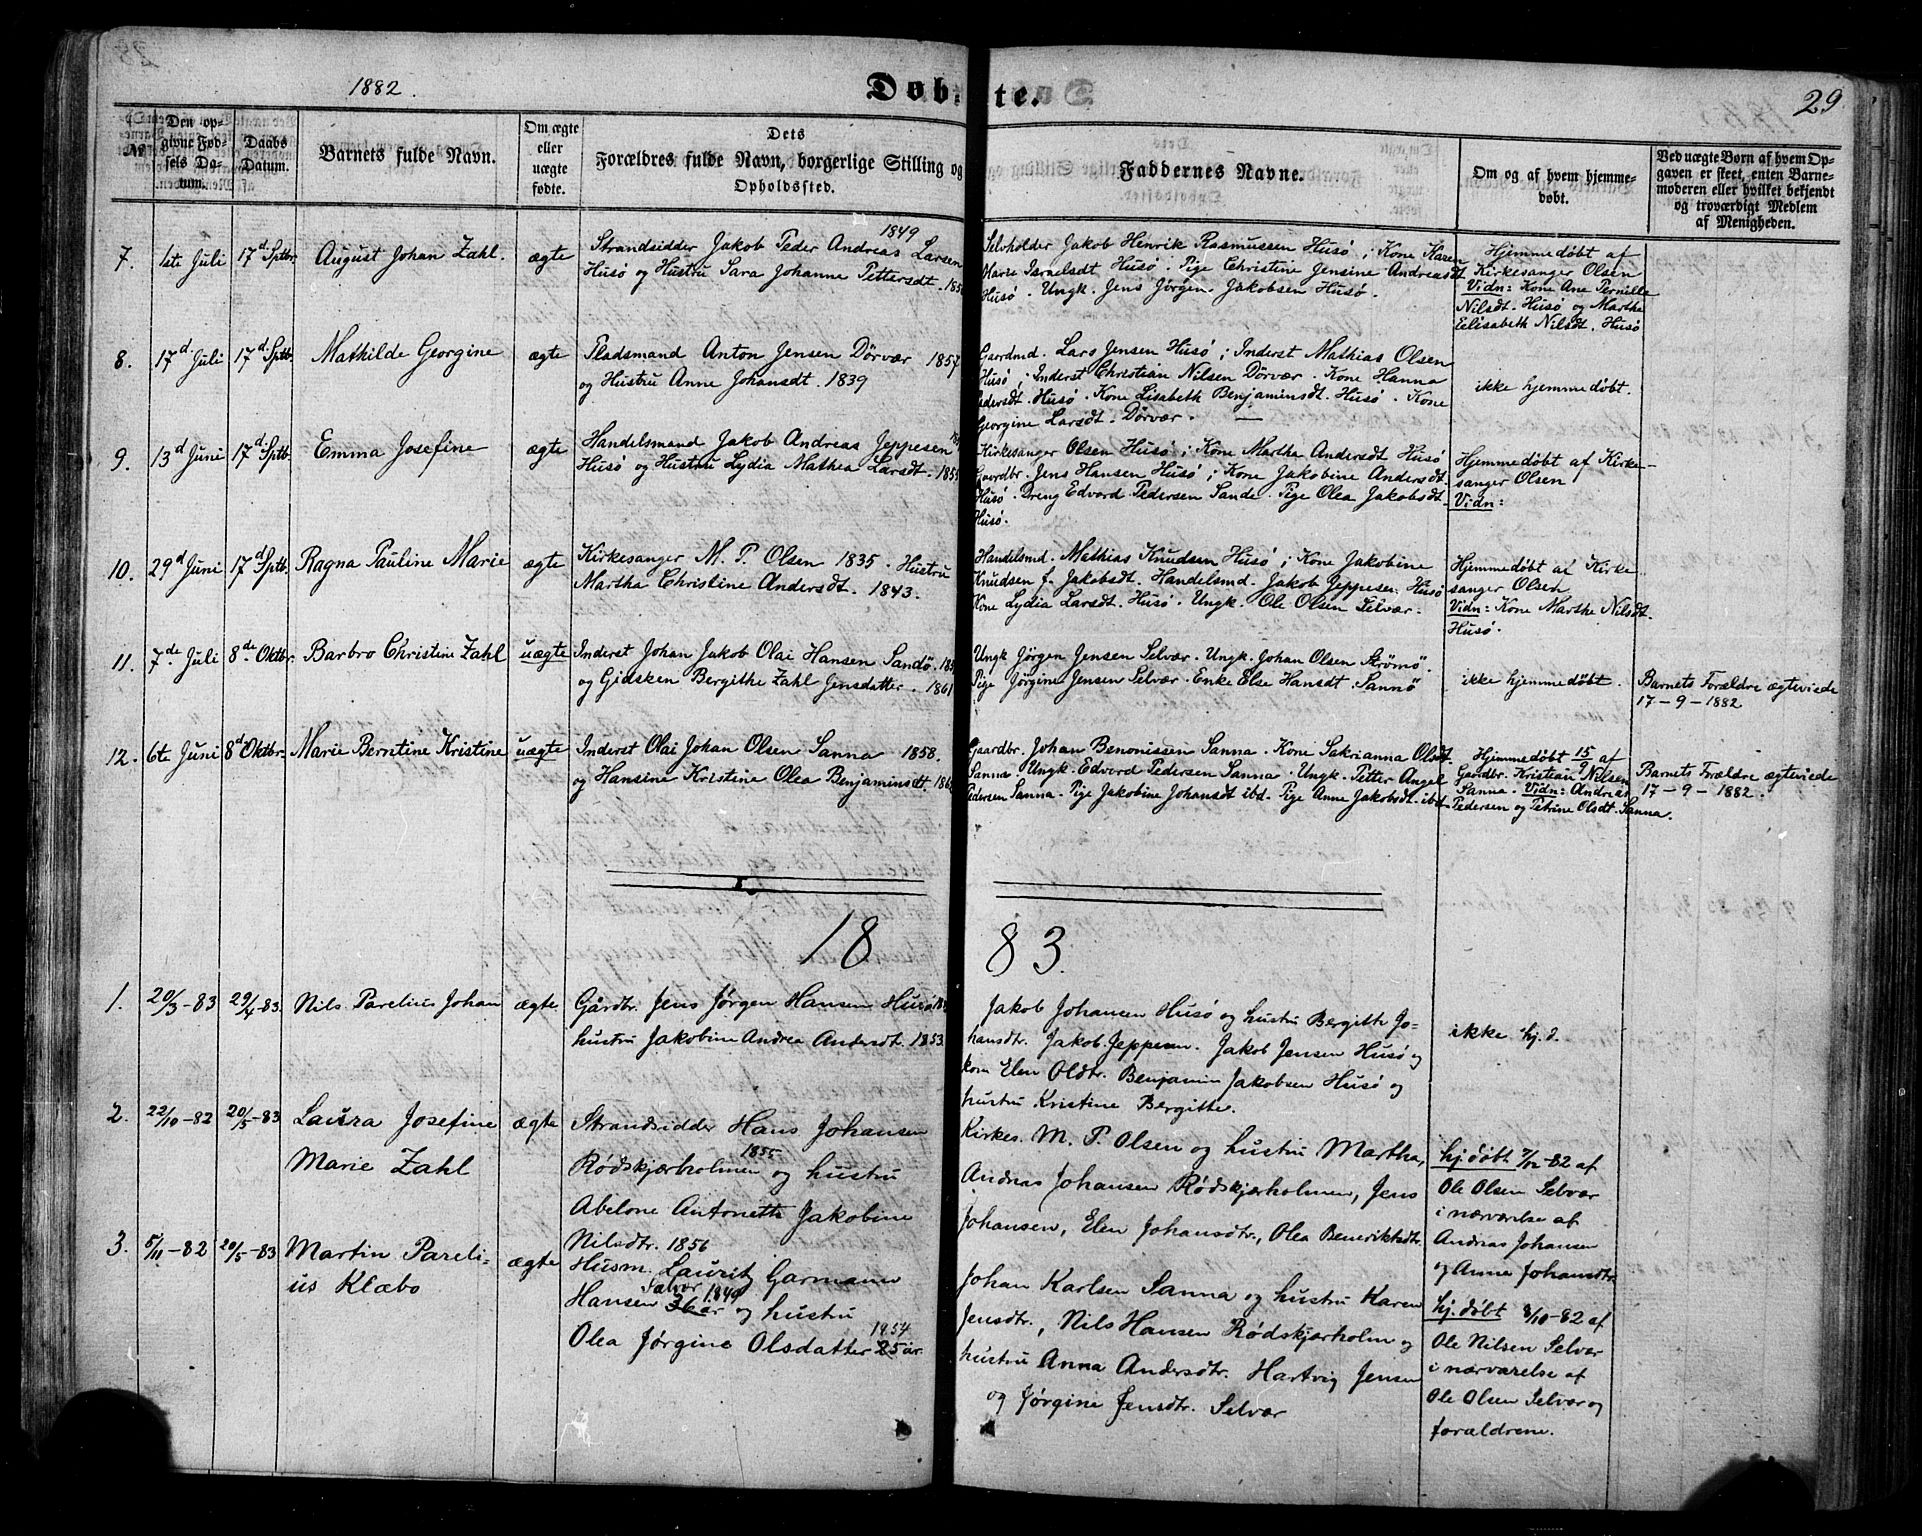 1882.
Døbte.
29
№
Den opgivne Fødsels Datum.
Daabs Datum.
Barnets fulde Navn.
Om ægte eller uægte fødte.
Dets Forældres fulde Navn, borgerlige Stilling og Opholdssted.
Faddernes Navne.
Om og af hvem hjemmedøbt.
Ved uægte Børn af hvem Opgaven er skeet, enten Barnemoderen eller hvilket bekjendt og troværdigt Medlem af Menigheden.
7. 1ste Juli 17d Sptbr. August Johan Zahl. ægte
Strandsidder Jakob Peder Andreas Larsen 1849
Husø og Hustru Sara Johanne Pettersdt.
Selvholder Jakob Henrik Rasmussen Husø; Kone Karen
Marie Israelsdt Husø. Pige Christine Jensine Andreasdt
Husø. Ungk. Jens Jørgen Jakobsen Husø.
Hjemmedøbt af
Kirkesanger Olsen
Vidn: Kone Ane Pernille
Nilsdt. Husø og Martha
Elisabeth Nilsdt. Husø
8. 17d Juli 17d Sptb. Mathilde Georgine ægte
Pladsmand Anton Jensen Dørvær 1857
og Hustru Anne Johansdt. 1839
Gaardmd. Lars Jensen Husø; Inderst Mathias Olsen
Husø; Inderst Christian Nilsen Dørvær. Kone Hanna
Pedersdt. Husø. Kone Lisabeth Benjaminsdt. Husø. Kone
Georgine Larsdt. Dørvær. —
ikke hjemmedøbt.
9. 13d Juni 17d Sptb. Emma Josefine ægte
Handelsmand Jakob Andreas Jeppesen
Husø og Hustru Lydia Mathea Larsdt.
Kirkesanger Olsen Husø; Kone Martha Andersdt Husø
Gaardbr. Jens Hansen Husø; Kone Jakobine Andersdt.
Husø. Dreng Edvard Pedersen Sande. Pige Olea Jakobsdt.
Husø.
Hjemmedøbt af Kirke-
sanger Olsen
Vidn:
10. 29d Juni 17d Sptb. Ragna Pauline Marie ægte
Kirkesanger M. P. Olsen 1835. Hustru
Martha Christine Andersdt. 1843.
Handelsmd. Mathias Knudsen Husø; Kone Jakobine
Knudsen f. Jakobsdt. Handelsmd. Jakob Jeppesen Husø
Kone Lydia Larsdt. Husø. Ungk. Ole Olsen Selvær.
Hjemmedøbt af Kirke
sanger Olsen
Vidn: Kone Marthe Nilsdt.
Husø.
11. 7de Juli 8de Oktbr. Barbro Christine Zahl uægte
Inderst Johan Jakob Olai Hansen Sandø.
og Gidsken Bergithe Zahl Jensdatter. 1861
Ungk Jørgen Jensen Selvær. Ungk. Johan Olsen Strømø.
Pige Jørgine Jensen Selvær. Enke Else Hansdt. Sannø
ikke hjemmedøbt.
Barnets Forældre ægteviede
17-9-1882
12. 6te Juni 8d Oktbr. Marie Berntine Kristine uægte
Inderst Olai Johan Olsen Sanna 1858.
og Hansine Kristine Olea Benjaminsdt
Gaardbr. Johan Benonissen Sanna. Kone Sakrianna Olsdt.
Sanna. Ungk. Edvard Pedersen Sanna. Ungk. Petter Angel
Pedersen Sanna. Pige Jakobine Johansdt ibd. Pige Anne Jakobsdt. ibd.
Hjemmedøbt 15/9 af
Gaardbr. Kristian Nilsen
Sanna. Vidn: Andreas
Pedersen og Petrine Olsdt. Sanna.
Barnets Forældre ægteviede
17-9-1882.
1883.
1. 20/3-83 29/4-83. Nils Parelius Johan ægte
Gårdbr. Jens Jørgen Hansen Husø
hustru Jakobine Andrea Andersdt. 1853.
Jakob Johansen Husø og hustru Bergitte Jo-
hansdtr. Jakob Jeppesen. Jakob Jensen Husø og
kone Elen Oldtr. Benjamin Jakobsen Husø og
hustru Kristine Bergitte.
ikke hj. d.
2. 22/10-82 20/5-83 Laura Josefine
Marie Zahl
ægte
Strandsidder Hans Johansen
Rødskjærholmen 1855 og hustru
Abelone Antonette Jakobine
Nilsdtr. 1856
Kirkes. M. P. Olsen og hustru Martha,
Andreas Johansen Rødskjærholmen, Jens
Johansen, Elen Johansdtr., Olea Benediktsdtr.
hj. døbt 3/12-82 af
Ole Olsen Selvær
i nærværelse af
Andreas Johansen
og Anne Johansdtr.
3. 5/11-82 20/5-83 Martin Pareli-
us Klæbo
ægte
Husm. Lauritz Garmann
Hansen 36 år Selvær 1849 og hustru
Olea Jørgine Olsdatter 25 år. 1854
Johan Karlsen Sanna og hustru Karen
Jensdtr., Nils Hansen Rødskjærholm og
hustru Anna Andersdtr. Hartvig Jensen
og Jørgine Jensdtr. Selvær
hj. døbt 8/10-82 af
Ole Nilsen Selvær
i nærværelse af
Ole Olsen Selvær og
forældrene.